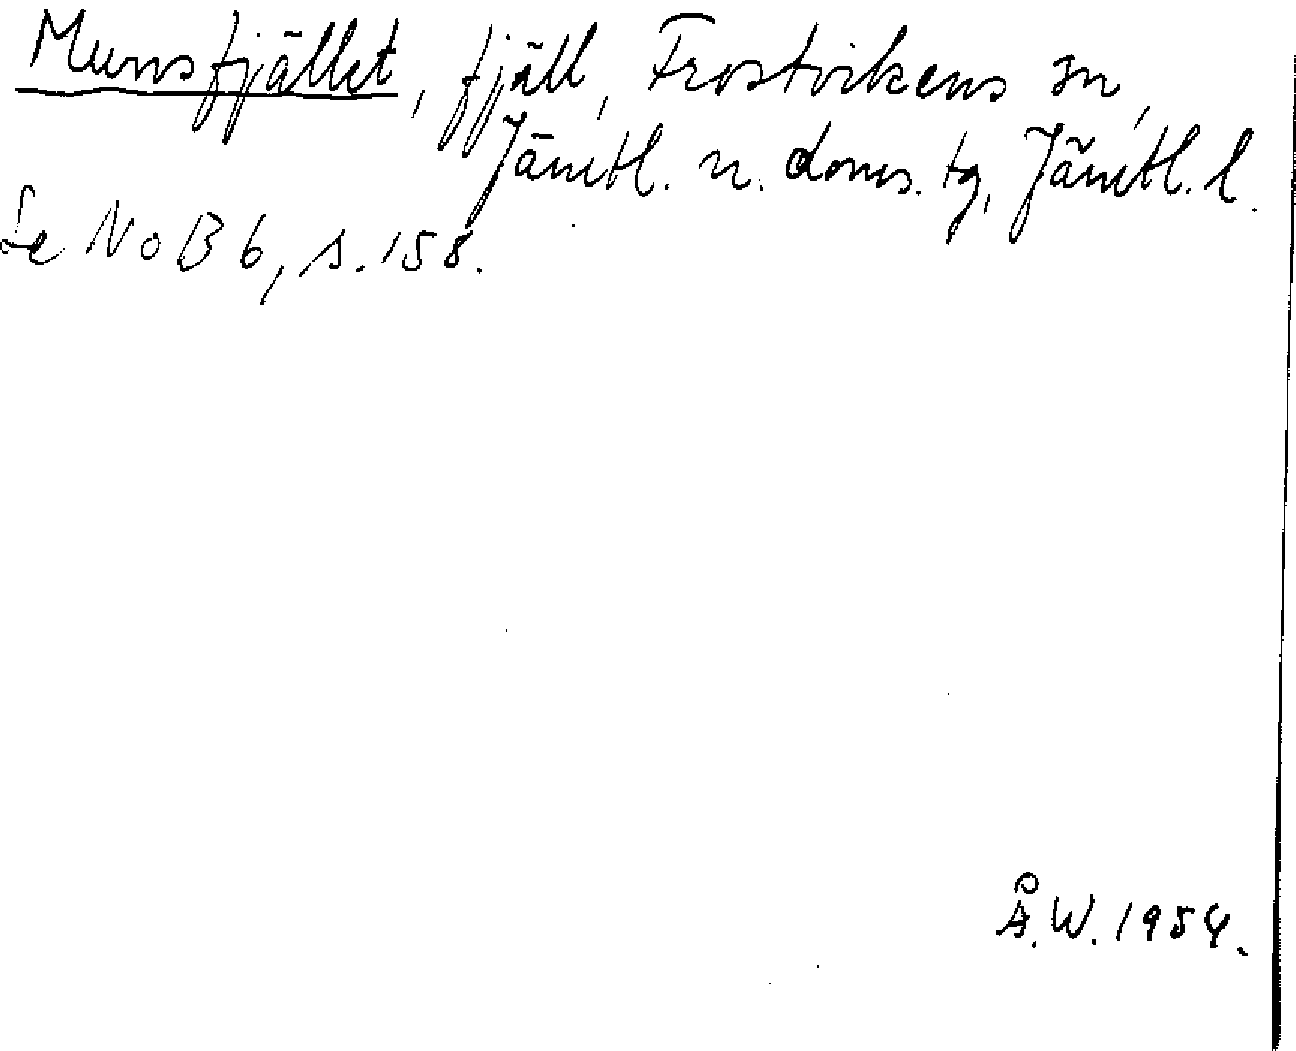 Munsfjället, fjäll, Frostvikens sn,
Jämtl. n. doms. tg, Jämtl. l.
Se NoB 6, s. 158.
Å.W. 1954.